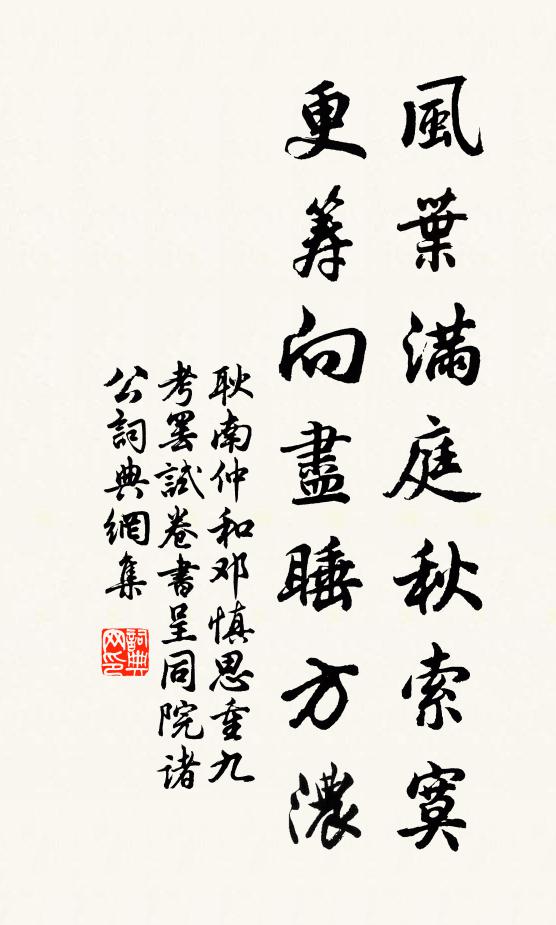 風葉滿庭秋索寞
更筹向盡睡方濃
耿南仲和邓慎思重九
考罢試卷書呈同院诸
公詞典網集
詞典网印